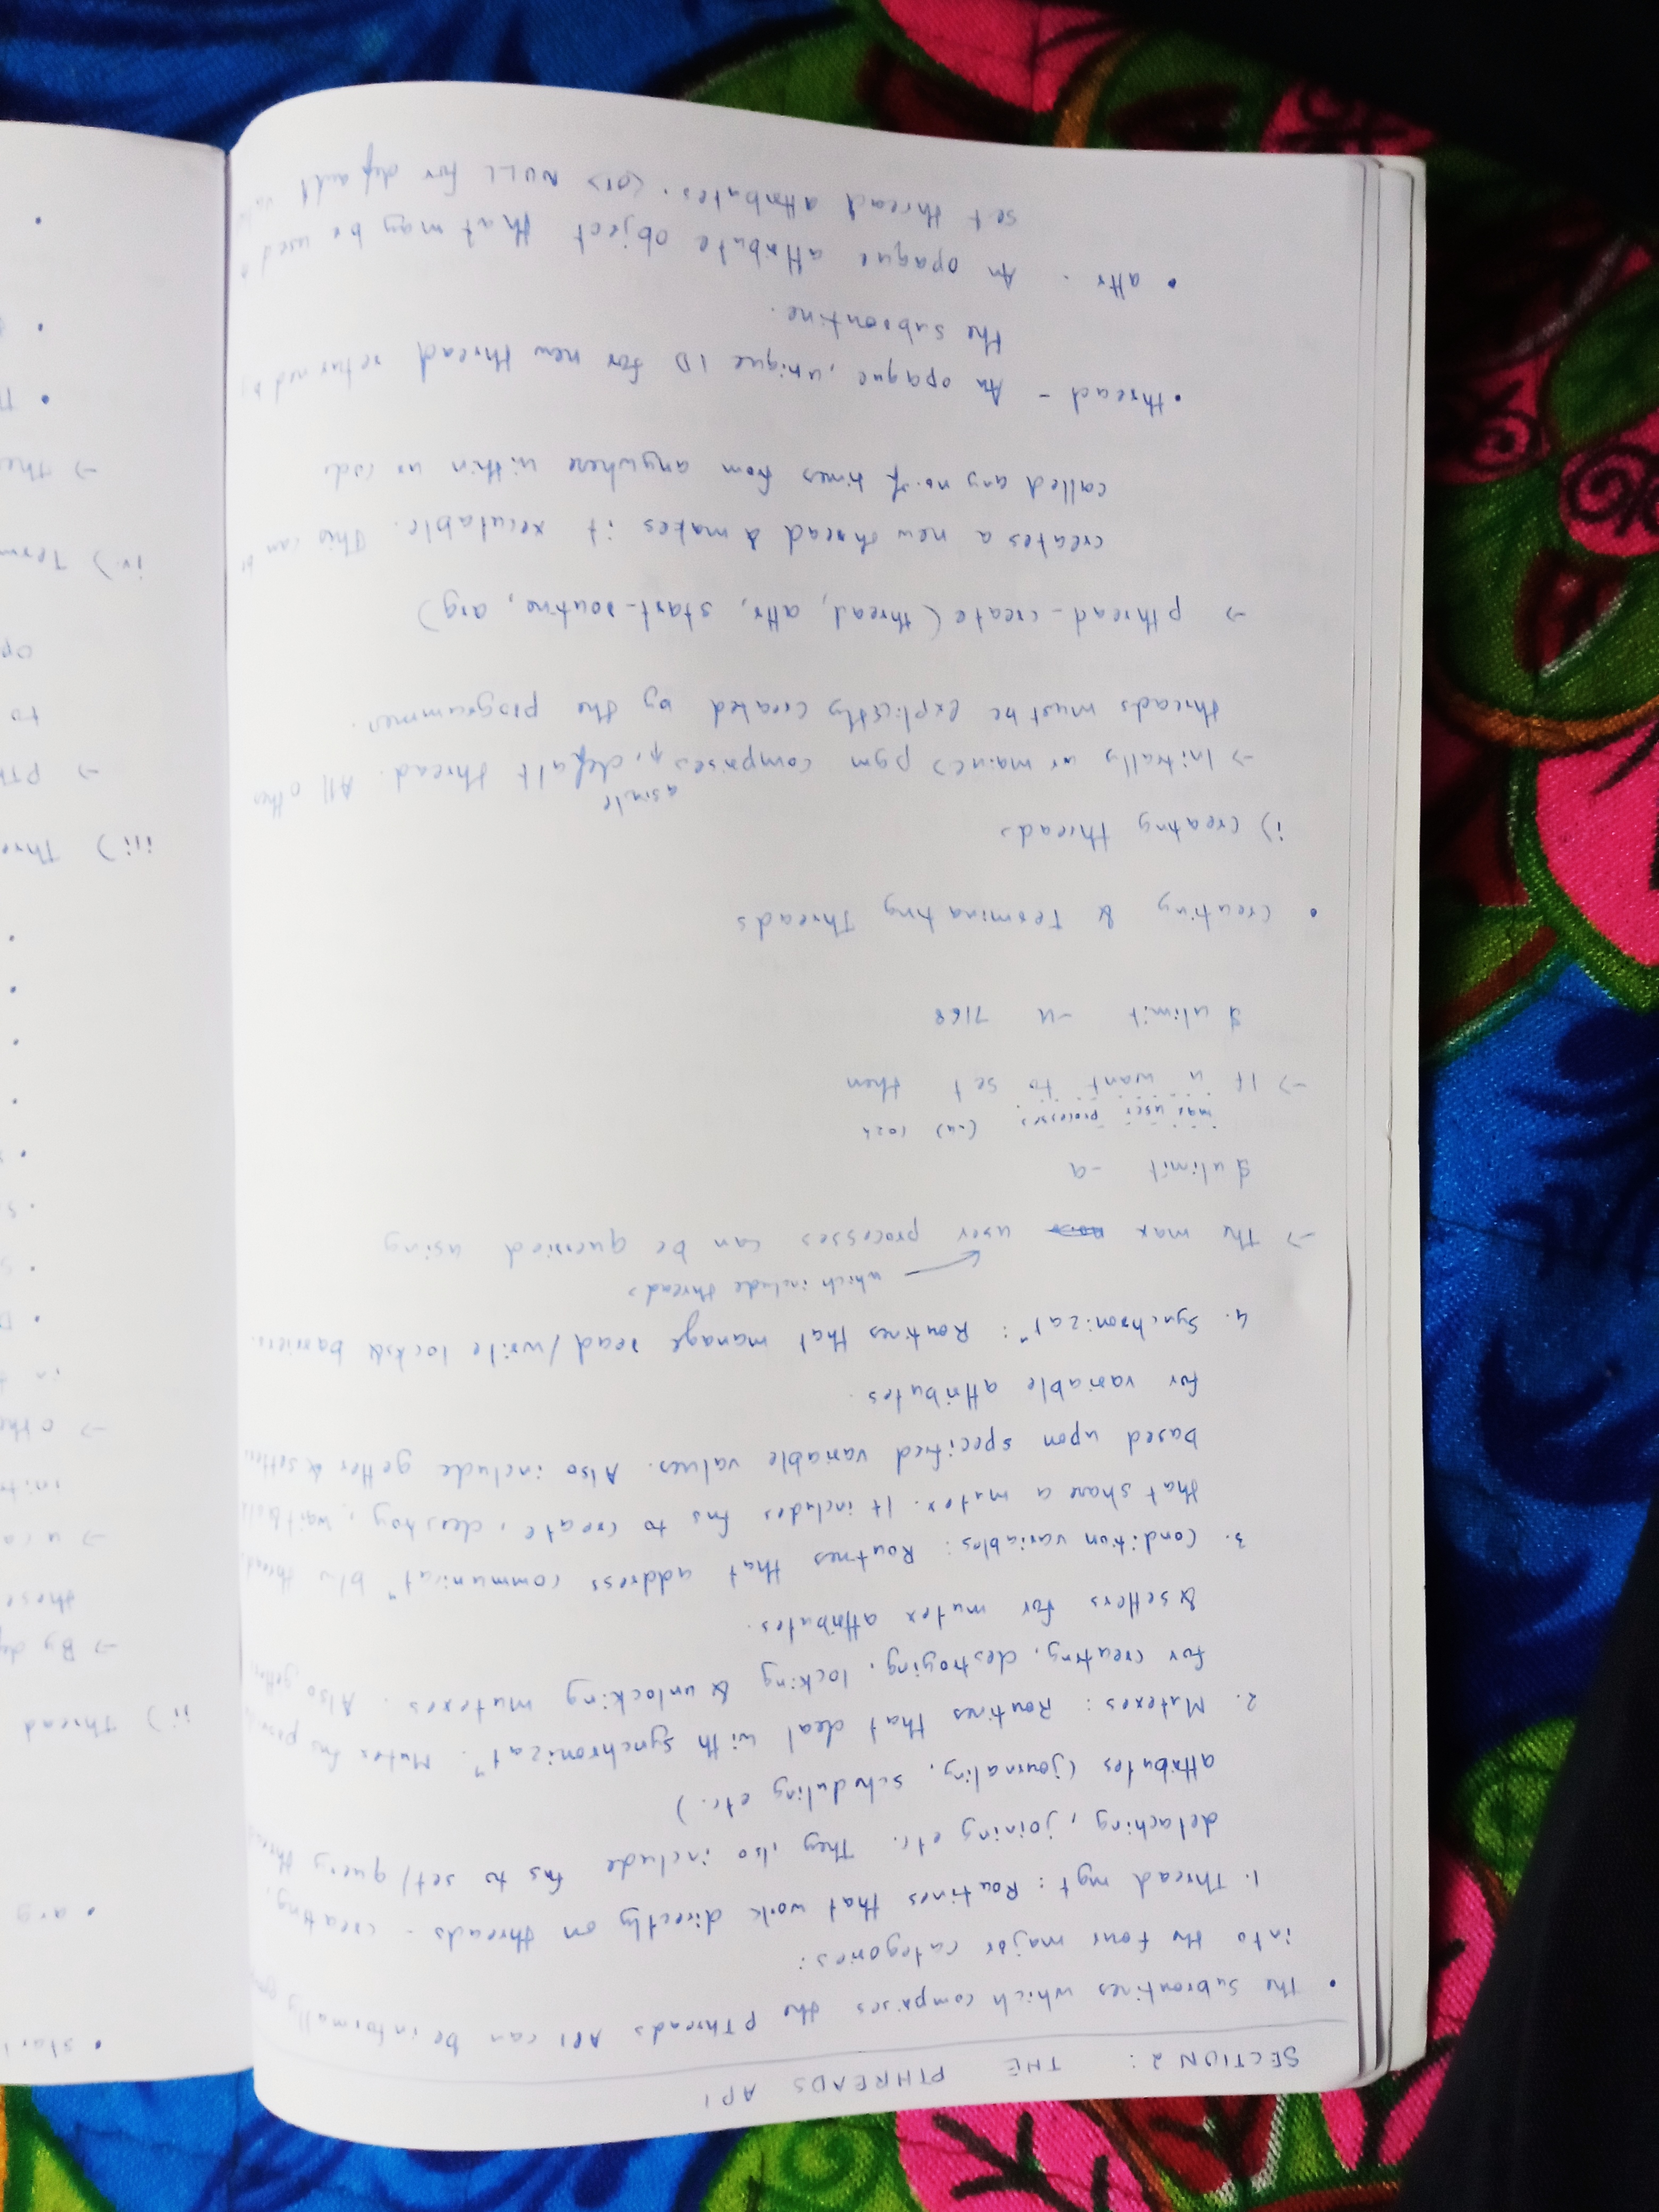 SECTION 2: THE PTHREADS API
• The subroutines which comprises the PThreads API can be informally
into the four major categories:
1. Thread mgt: Routines that work directly on threads - creating,
detaching, joining etc. They also include fns to set/query thread
attributes (journaling, scheduling etc.)
2. Mutexes: Routines that deal with synchronizatⁿ. Mutex fns provide
for creating, destroying, locking & unlocking mutexes. Also getters
& setters for mutex attributes.
3. Condition variables: Routines that address communicatⁿ b/w threads
that share a mutex. It includes fns to create, destroy, wait
based upon specified variable values. Also include getter & setters
for variable attributes.
4. Synchronizatⁿ: Routines that manage read/write locks & barriers.
which include threads
→ The max user processes can be queried using
$ ulimit -a
max user processes (-u) 1024
→ If u want to set then
$ ulimit -u 7168
• Creating & Terminating Threads
i) Creating threads
a single
→ Initially ur main() pgm comprises, defalt thread. All other
threads must be explicitly created by the programmer.
→ pthread-create (thread, attr, start-routine, arg)
creates a new thread & makes it xecutable. This can be
called any no. of times from anywhere within ur code
• thread - An opaque, unique ID for new thread returned by
the subroutine.
• attr. An opaque attribute object that may be used
set thread attributes. (or) NULL for default
• arg
ii) Thread
→ By
these
→ u ca
→ othe
in
iii) Thre
→ PTh
to
op
iv) Term
→ The